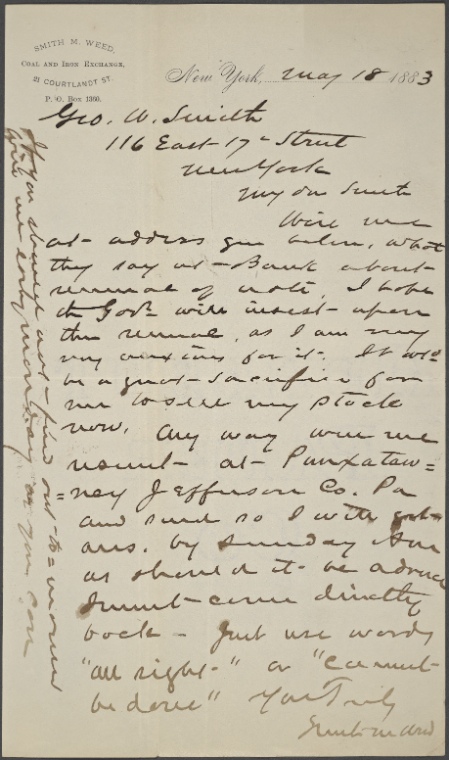 SMITH M. WEED,
COAL AND IRON EXCHANGE,
21 COURTLANDT ST.
P. O. Box 1360.
New York, May 18 1883
Geo. W. Smith
116 East 17th Street
New York
My Dear Smith
Wire me
at address given below, what
they say at Bank about
renewal of note, I hope
the Gov. will insist upon
the renewal, as I am very
very anxious for it. It wld
be a great sacrifice for
me to sell my stock
now. Any way wire me
result at Punxataw=
=ney Jefferson Co. Pa
and send so I will get
ans. by Sunday
as should it be adverse
I must come directly
back - Just use words
"all right" or "cannot
be done" Yours Truly
Smith M Weed
If you should not find out tomorrow
wire me early Monday as you can